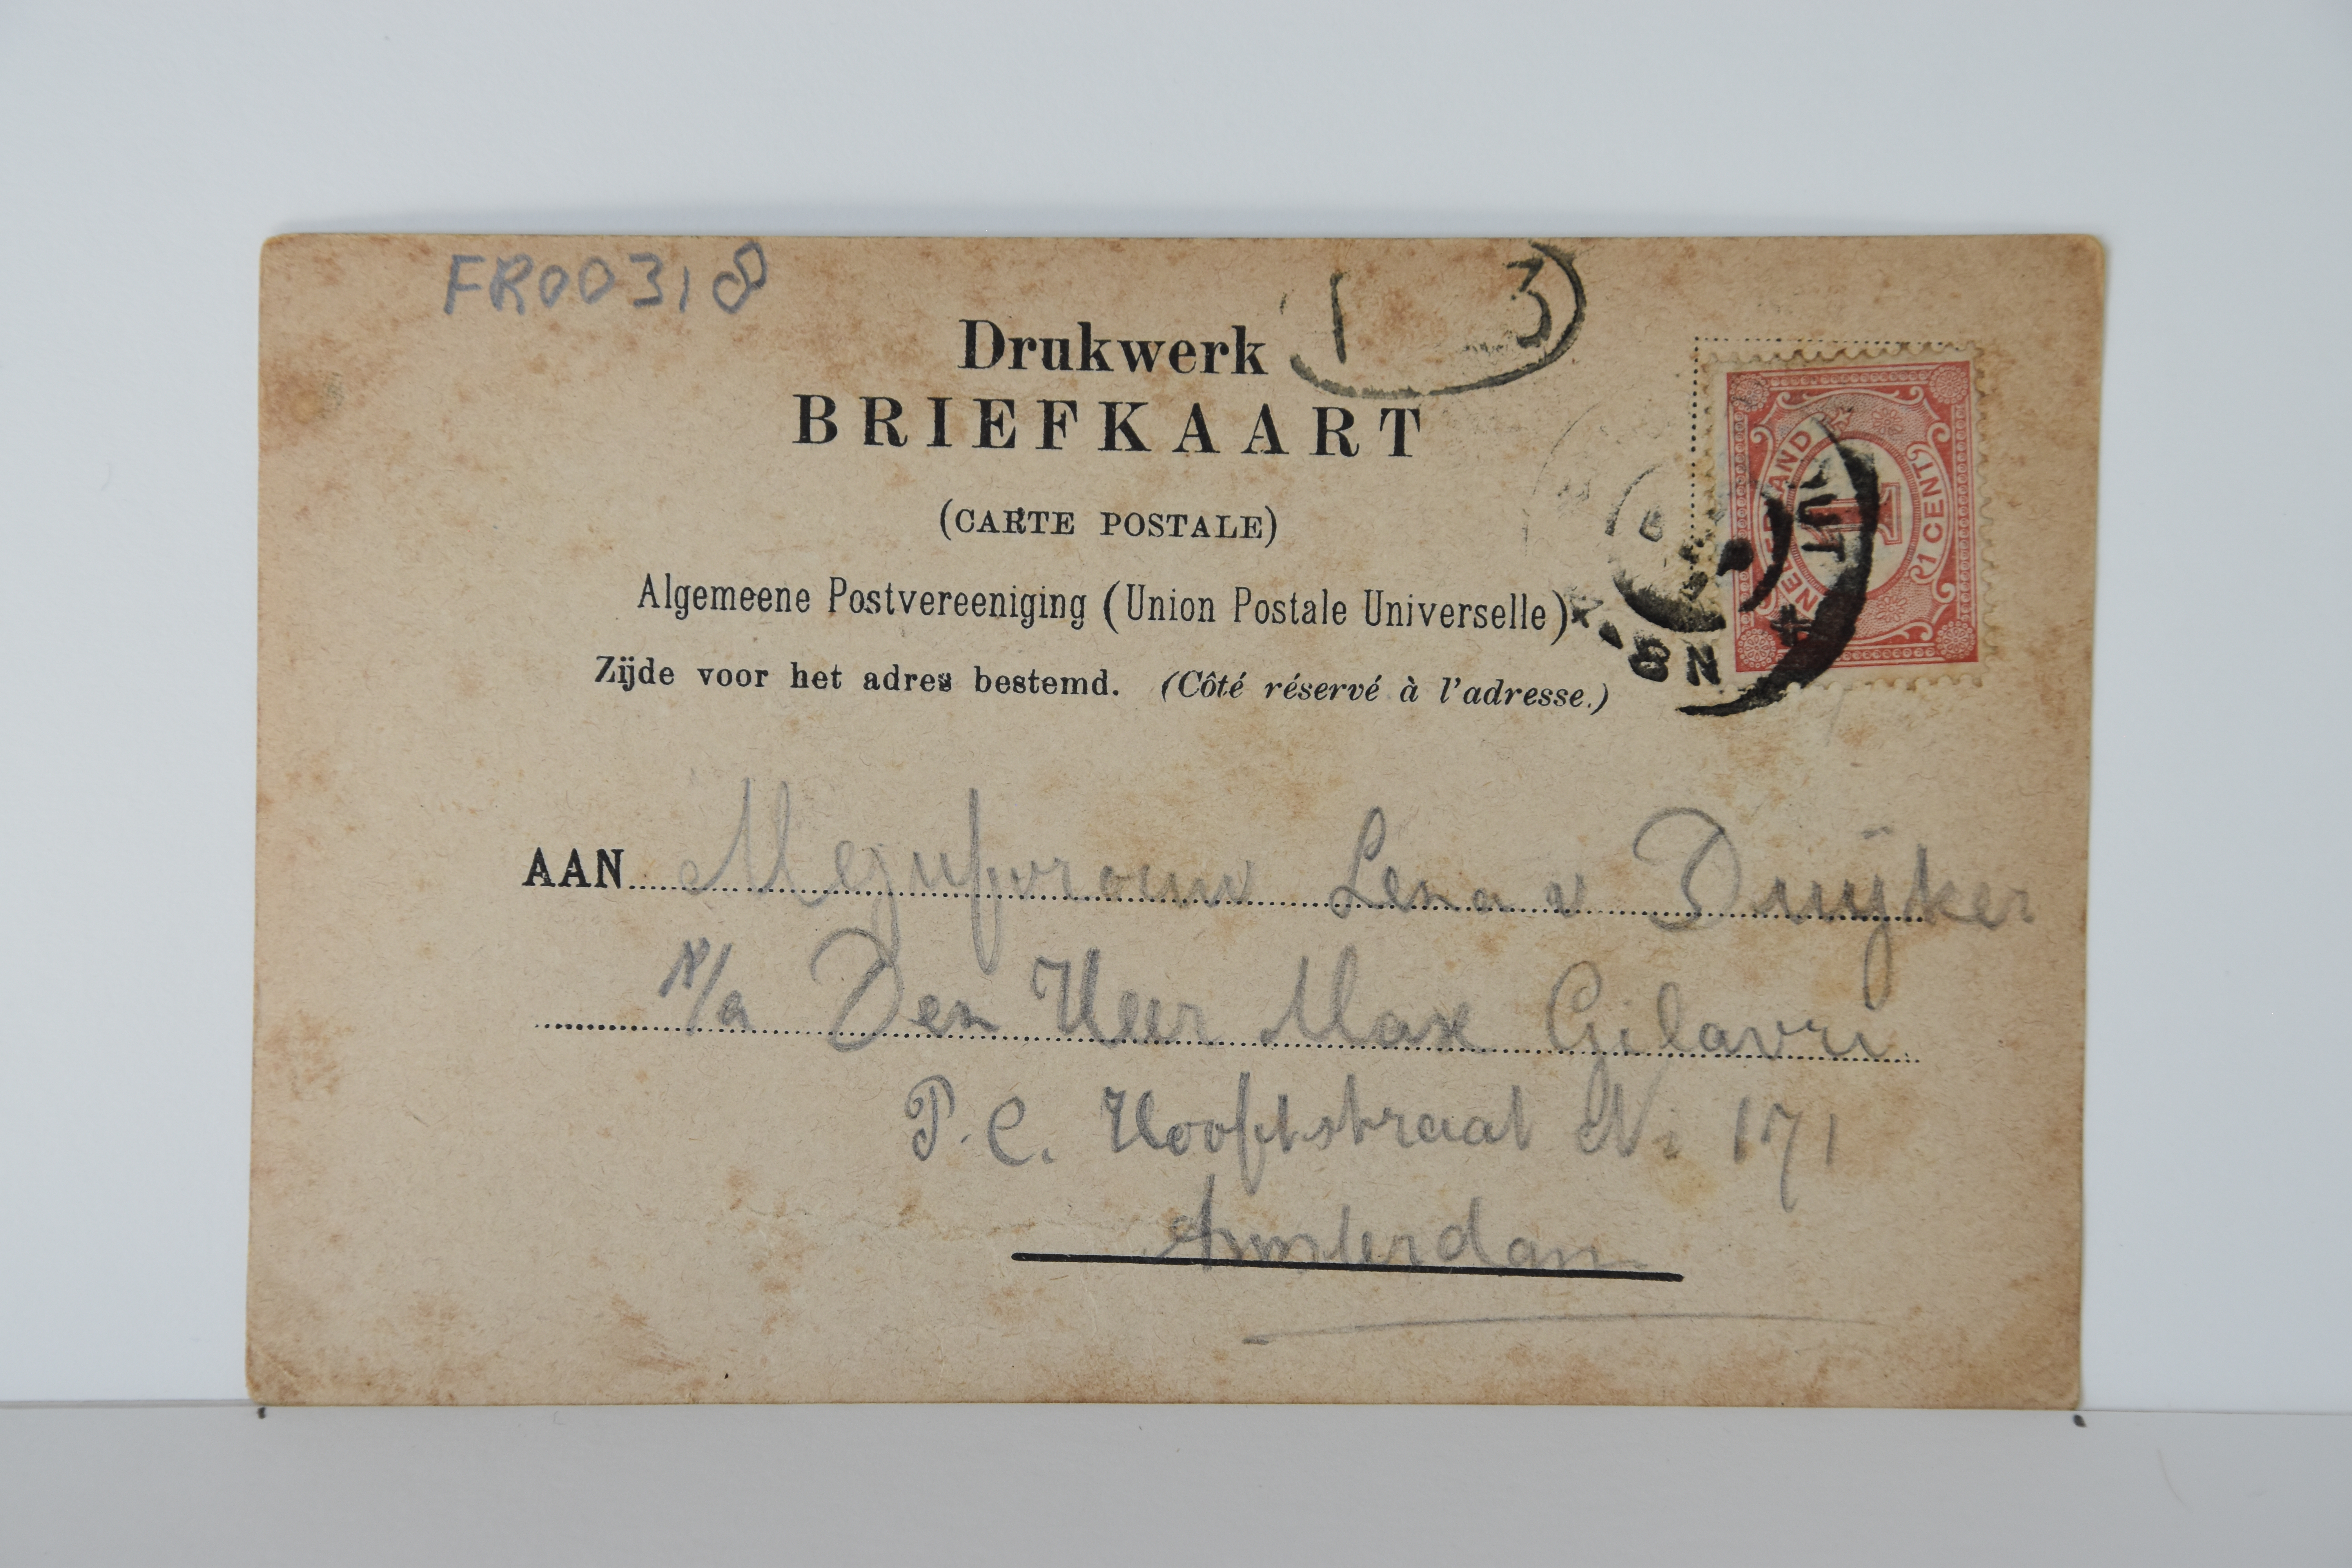 FR00318
1 3
Drukwerk
BRIEFKAART
(CARTE POSTALE)
Algemeene Postvereeniging (Union Postale Universelle)
Zijde voor het adres bestemd. (Côté réservé à l'adresse.)
NEDERLAND
1
1 CENT
AAN Mejufvrouw Lena v Duijker
p/a Den Heer Max Gilavri
P. C. Hooftstraat No 171
Amsterdam